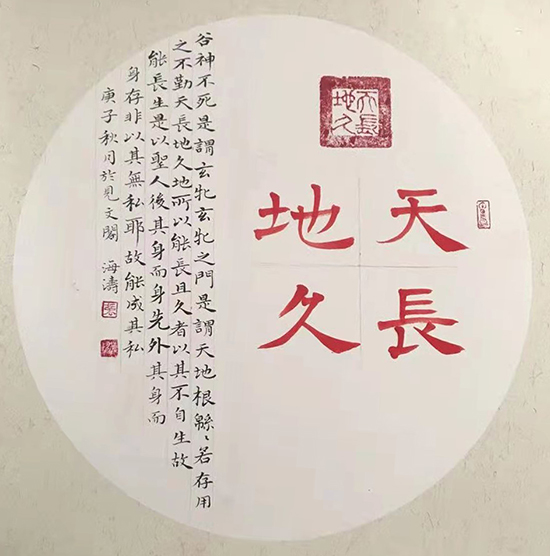 天長
地久
天長
地久
谷神不死是謂玄牝玄牝之門是謂天地根緜〻若存用
之不勤天長地久地所以能長且久者以其不自生故
能長生是以聖人後其身而身先外其身而
身存非以其無私耶故能成其私
庚子秋月於見文閣 海濤